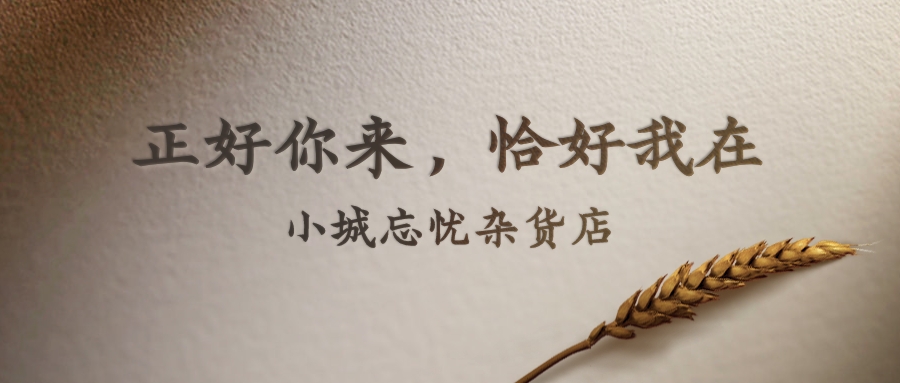 正好你来，恰好我在
小城忘忧杂货店